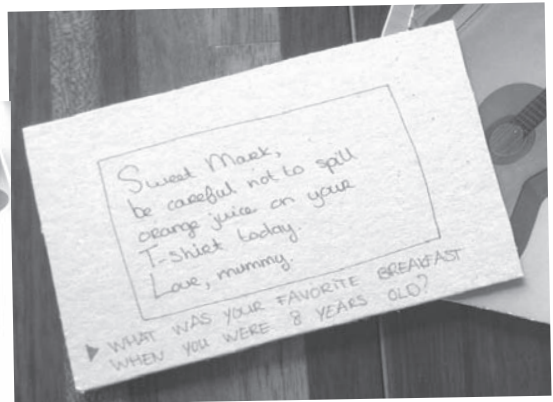 Sweet Mark,
be careful not to spill
orange juice on your
T-shirt today.
Love, mummy.
▶ WHAT WAS YOUR FAVORITE BREAKFAST
WHEN YOU WERE 8 YEARS OLD?